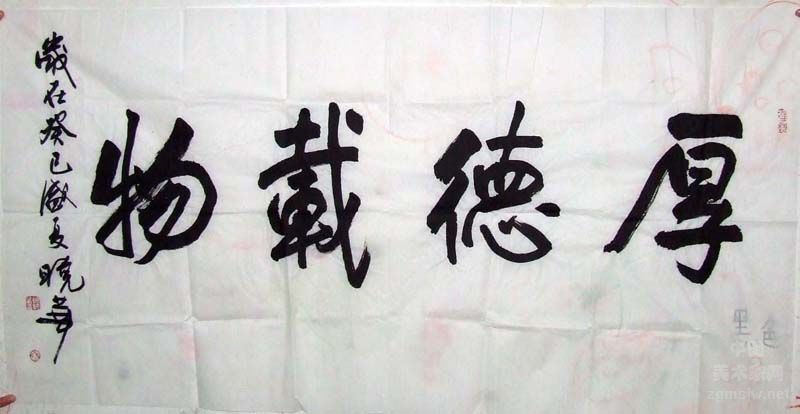 厚德載物
歲在癸巳盛夏曉華
墨色
美术家网
zgmsjw.net